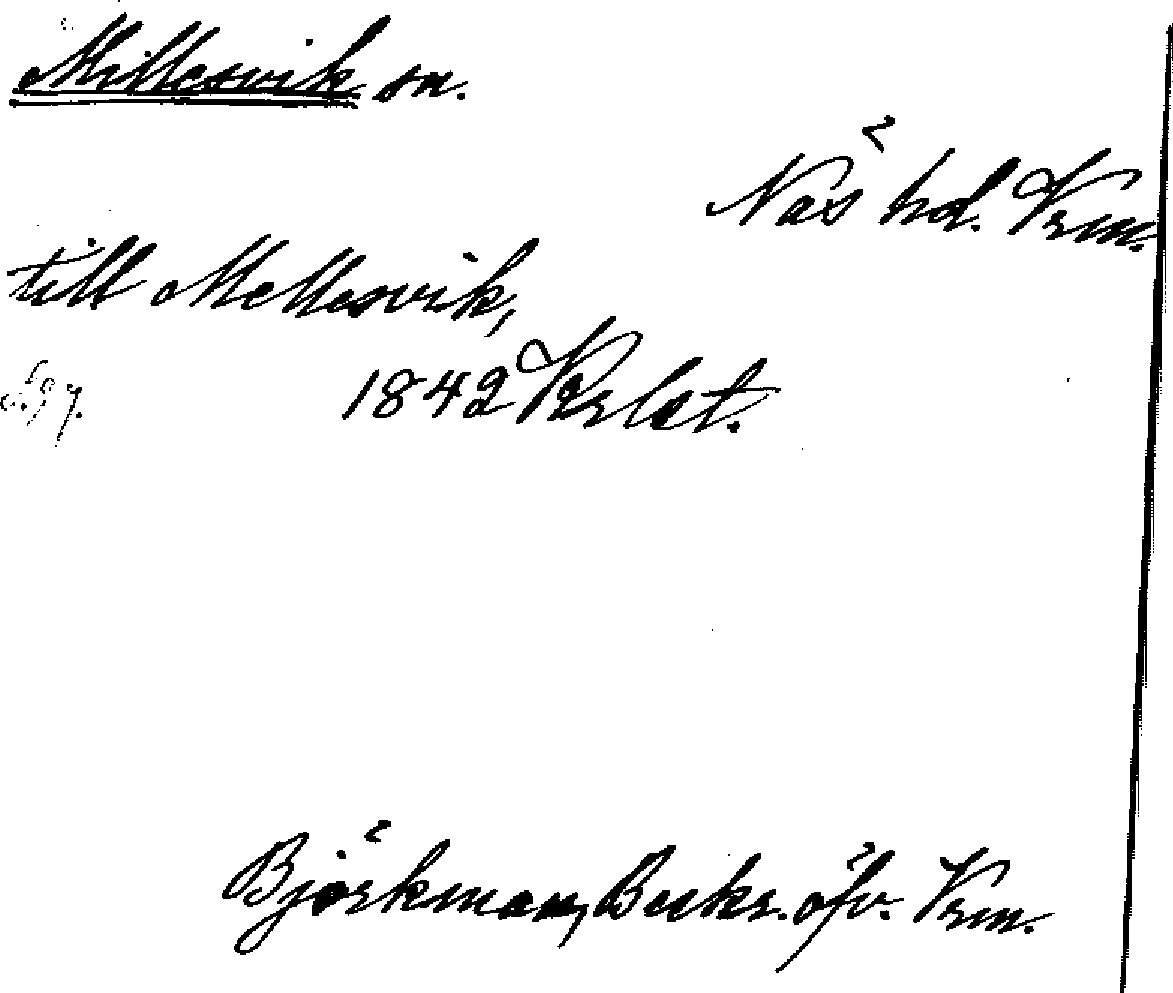 Millesvik sn.
Näs hd. Vrm.
till Mellesvik,
1842 Krlst.
Björkman, Beskr. öfv. Vrm.